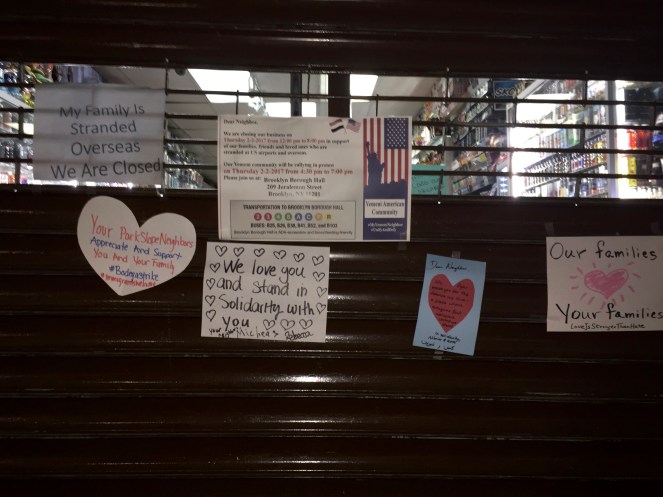 My Family Is
Stranded
Overseas
We Are Closed
Dear Neighbor,
We are closing our business on
Thursday 2-2-2017 from 12:00 pm to 8:00 pm in support
of our families, friends and loved ones who are
stranded at US airports and overseas.
Our Yemeni community will be rallying in protest
on Thursday 2-2-2017 from 4:30 pm to 7:00 pm
Please join us at: Brooklyn Borough Hall
209 Joralemon Street
Brooklyn, NY 11201
TRANSPORTATION TO BROOKLYN BOROUGH HALL
Yemeni American
Community
Your Park Slope Neighbors
Appreciate And Support
You And Your Family
#Bodegastrike
We love you
and stand in
Solidarity with
you
Dear Neighbor
Our families
Your families
Love Is Stronger Than Hate